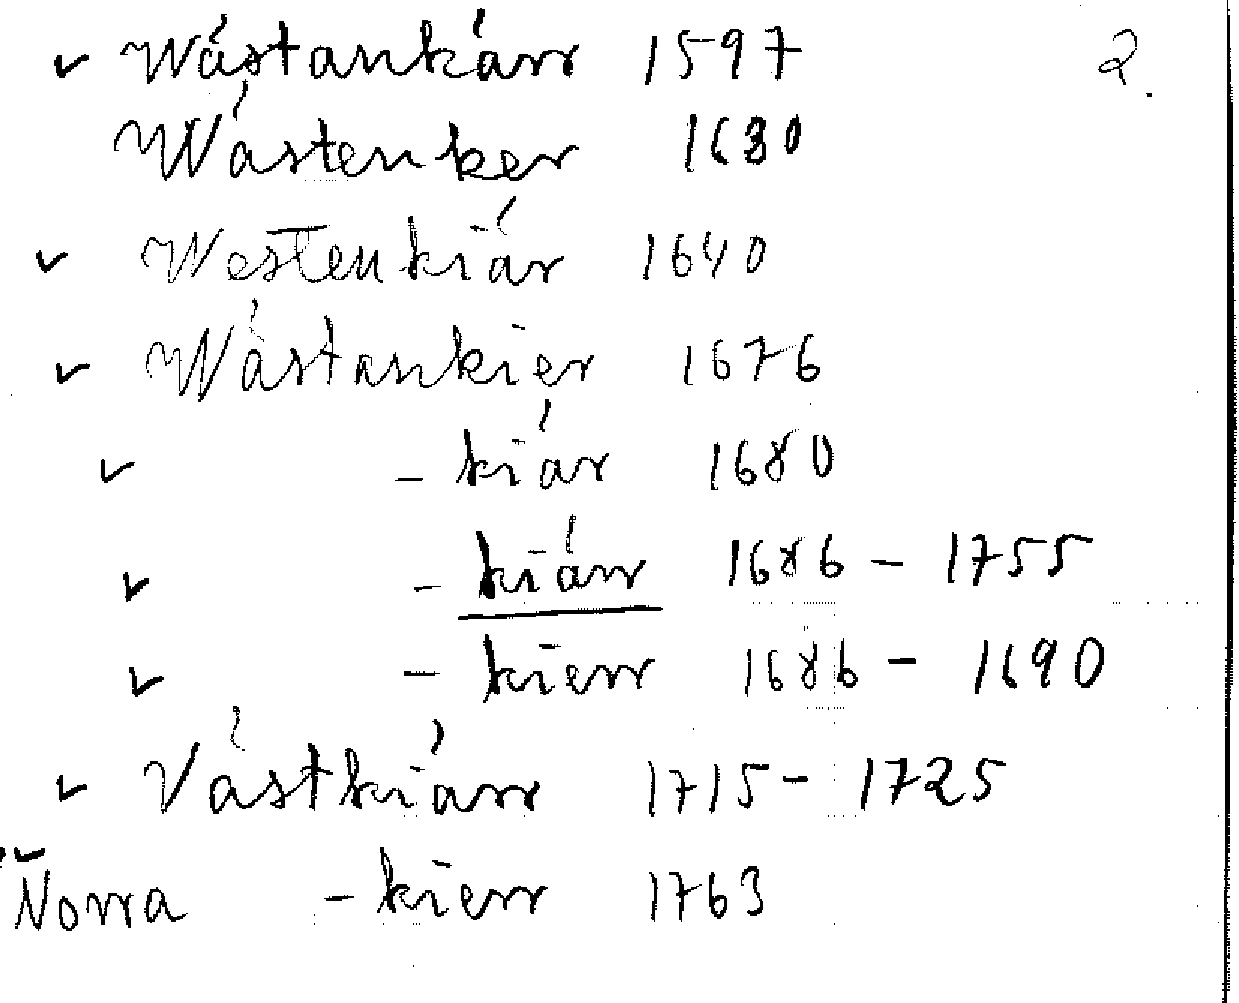 ✓ Wástankárr 1597 2.
Wástenker 1630
✓ Westenkiár 1640
✓ Wástankier 1676
✓ - kiár 1680
✓ - kiárr 1686 - 1755
✓ - kierr 1686 - 1690
✓ Vástkiárr 1715 - 1725
✓ Norra - kierr 1763